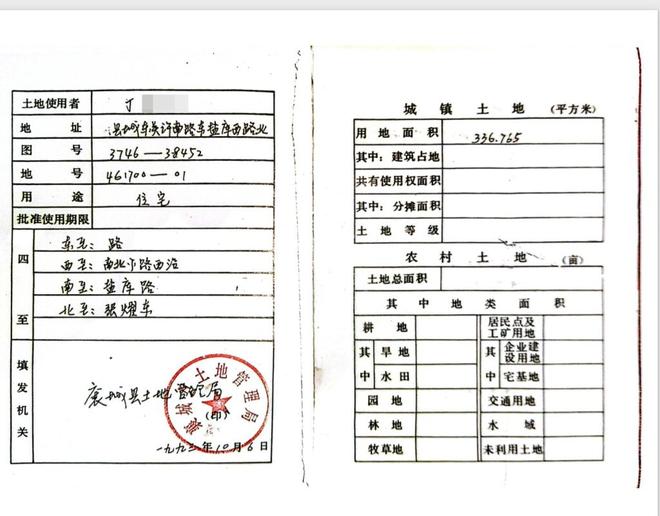 土地使用者
地 址 县城东关许南路东盐库西路北
图 号 3746—38452
地 号 461700—01
用 途 住宅
批准使用期限
四至
东至：路
西至：南北小路西沿
南至：盐库路
北至：张耀东
填发机关
襄城县土地管理局
(印)
土地管理局
一九九二年10月6日
城镇土地 (平方米)
用地面积 336.765
其中：建筑占地
共有使用权面积
其中：分摊面积
土地等级
农村土地 (亩)
土地总面积
其中地类面积
耕 地 居民点及工矿用地
其中 旱地 其中 企业建设用地
水田 宅基地
园 地 交通用地
林 地 水 域
牧草地 未利用土地